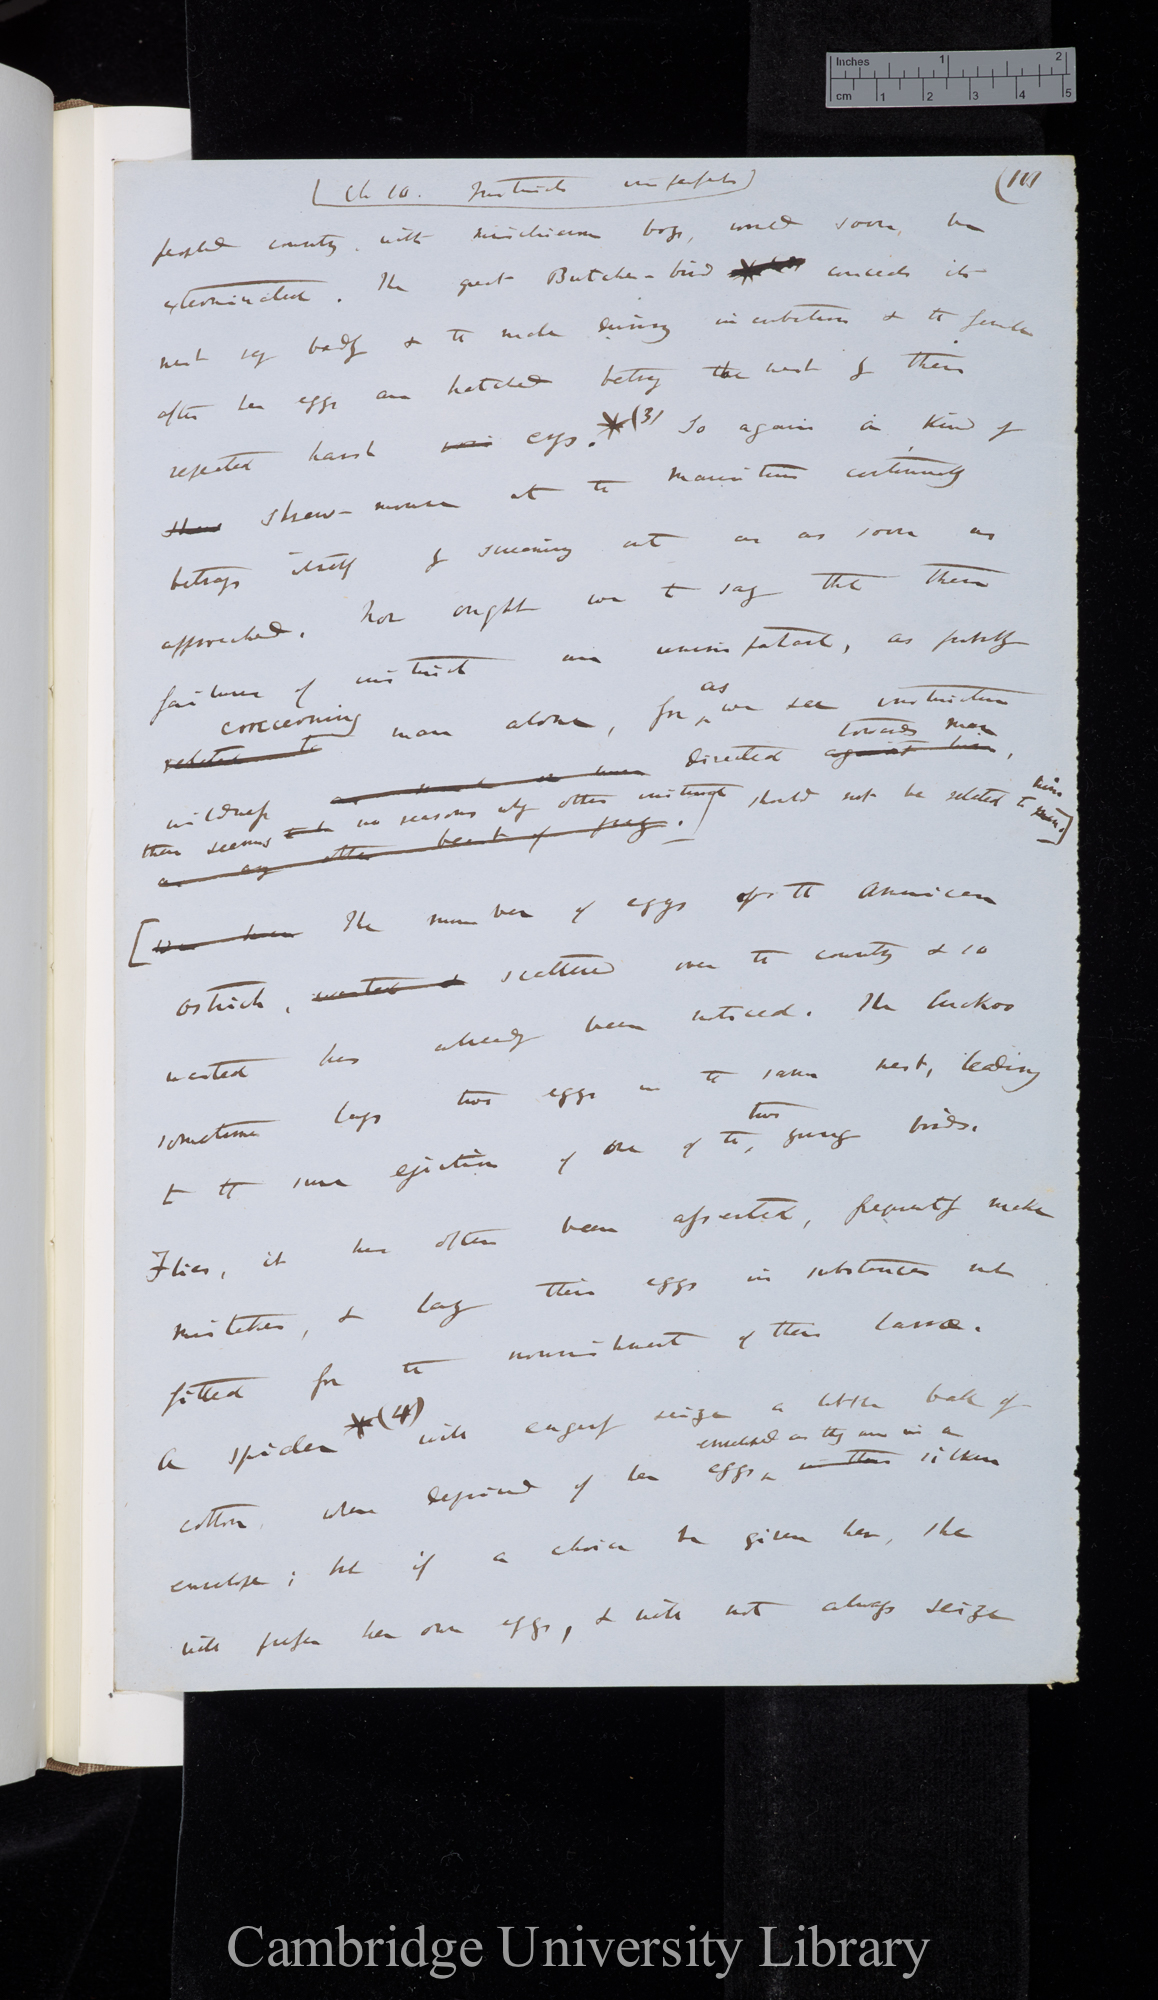 Inches 1 2
cm 1 2 3 4 5
[Ch 10. Instincts imperfect]
(101
peopled country with mischievous boys, would soon be
exterminated. The great Butcher-bird conceals its
nest so badly & the male during incubation & the female
after her eggs are hatched betray the nest by their
repeated harsh cries. *(3) So again a kind of
Shrew-mouse at the Mauritius continually
betrays itself by screaming out as soon as
approached. Nor ought we to say that these
failures of instinct are unimportant, as partly
concerning
related to man alone, for as we see instinctive
wildness directed towards man,
against him
there seems no reason why other instincts should not be related to him]
as any other beast of prey.
[We have The number of eggs of the American
ostrich, wasted & scattered over the country & so
wasted has already been noticed. The Cuckoo
sometimes lays two eggs in the same nest, leading
two
to the sure ejection of one of the young birds.
Flies, it has often been asserted, frequently make
mistakes, & lay their eggs in substances not
fitted for the nourishment of their larvæ.
A spider *(4) will eagerly seize a little ball of
enveloped as they are in a
cotton, when deprived of her eggs, in their silken
envelope; but if a choice be given her, she
will prefer her own eggs, & will not always seize
Cambridge University Library